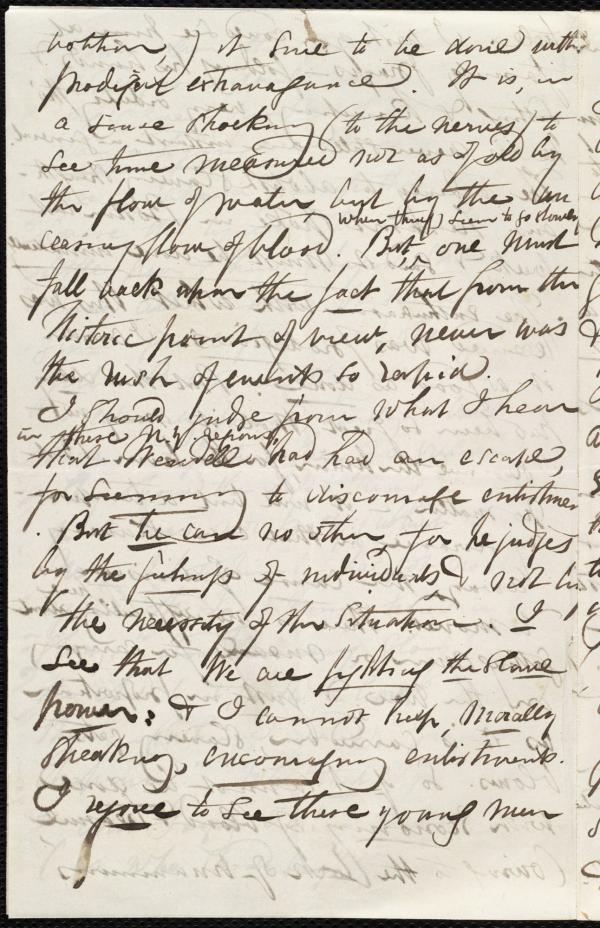 it sure to be done with
prodigal extravagance. It is, in
a sense shocking (to the nerves) to
see time measured not as of old by
the flow of water, but by the un
ceasing flow of blood. But, one must
when things seem to go slowly
fall back upon the fact that from the
historic point of view, never was
the rush of events so rapid.
I should judge from what I hear
in these N.Y. reports,
that Wendell had had an escape,
for seeming to discourage enlistmen
. But he can no other, for he judges
by the feelings of individuals & not by
the necessity of the situation. I
see that we are fighting the slave
power; & I cannot help, morally
speaking, encouraging enlistments.
I rejoice to see these young men